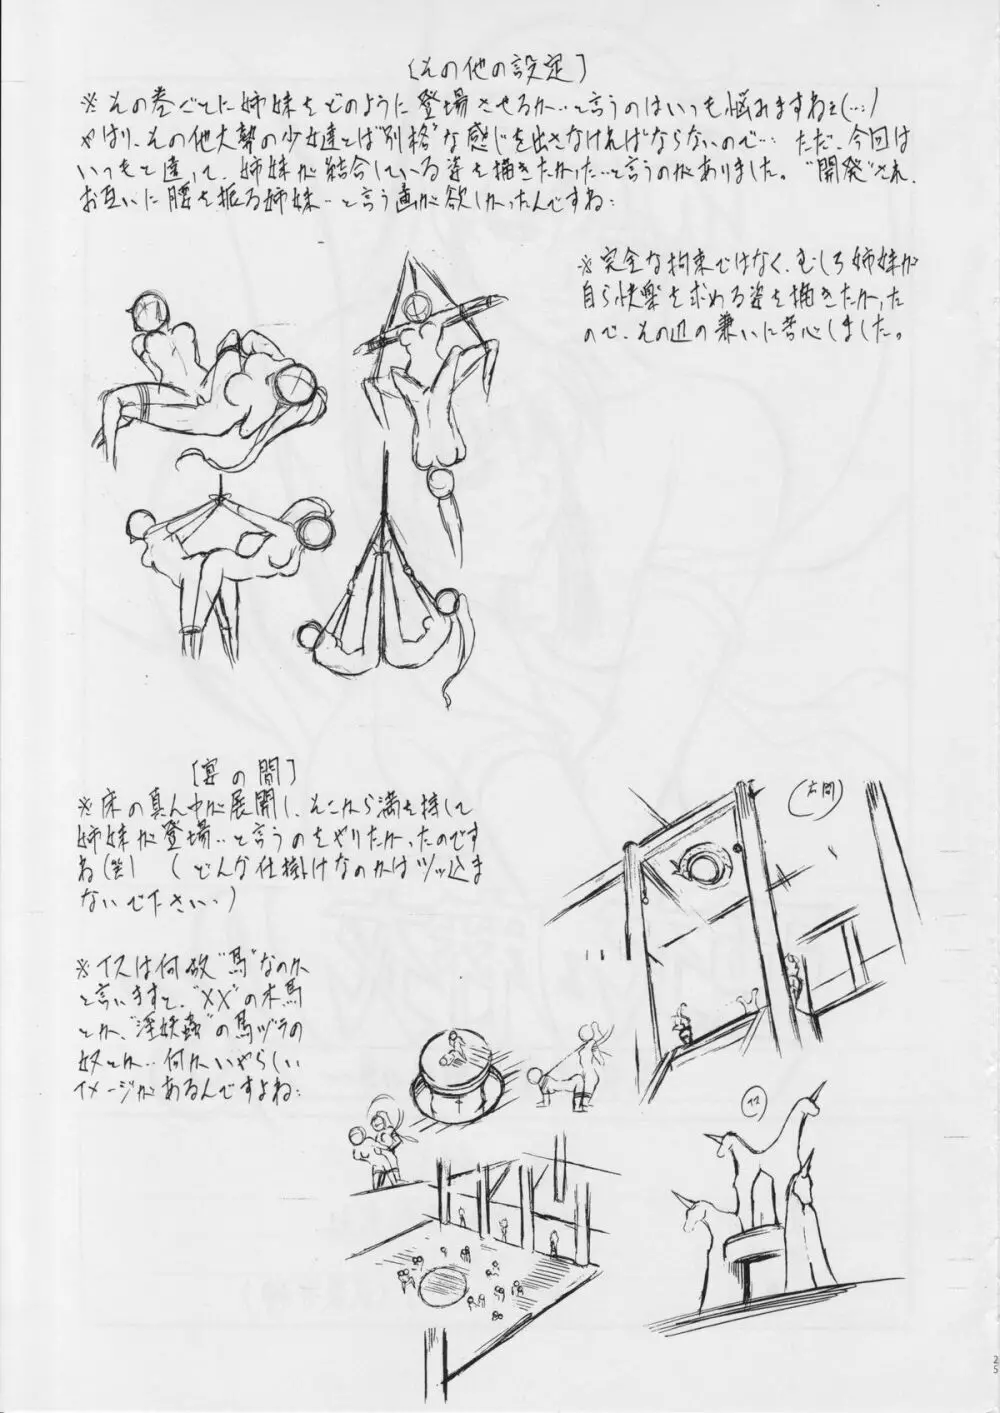 [その他の設定]
※その巻ごとに姉妹をどのように登場させるか…と言うのはいつも悩みますねえ(…;)
やはり、その他大勢の少女達とは"別格"な感じを出さなければならないので… ただ、今回は
いつもと違って、姉妹が結合している姿を描きたかった…と言うのがありました。"開発"され、
お互いに腰を振る姉妹…と言う画が欲しかったんですね;
※完全な拘束ではなく、むしろ姉妹が
自ら快楽を求める姿を描きたかった
ので、その辺の兼いに苦心しました。
[宴の間]
※床の真ん中が展開し、そこから満を持して
姉妹が登場…と言うのをやりたかったのです
ね(笑) (どんな仕掛けなのかはツッ込ま
ないで下さい…)
※イスは何故"馬"なのか
と言いますと、"XX"の木馬
とか、"淫妖蟲"の馬ヅラの
奴とか…何かいやらしい
イメージがあるんですよね;
25